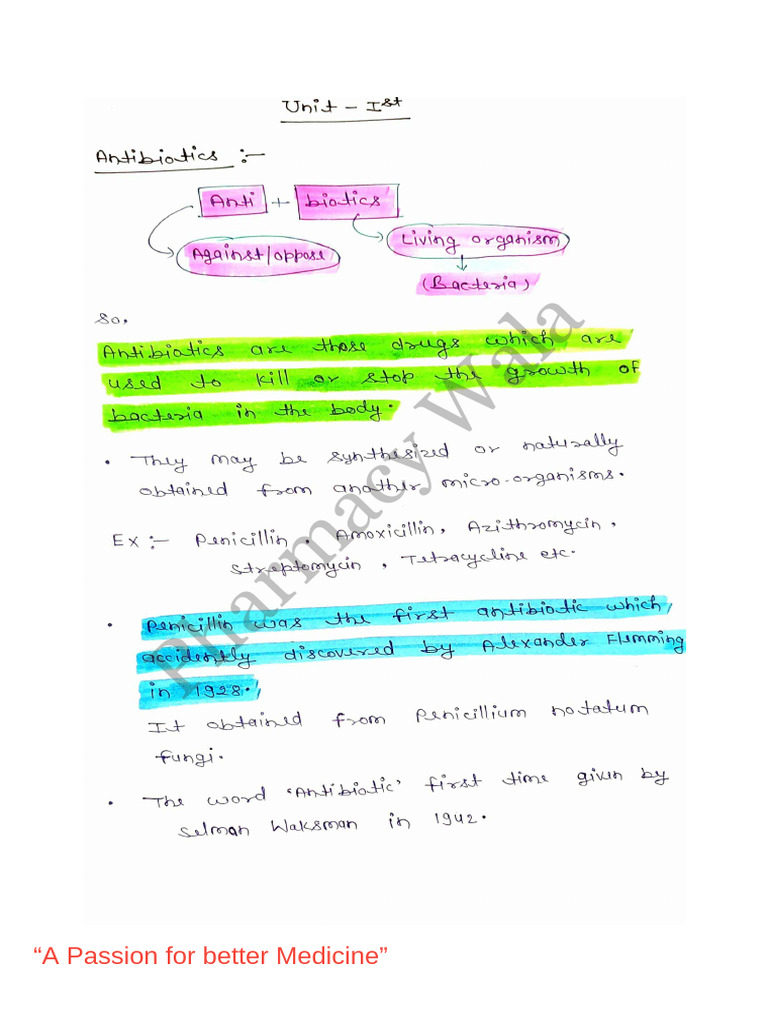 Unit - Ist
Antibiotics :-
Anti + biotics
Against/oppose
Living organism
(Bacteria)
So,
Antibiotics are those drugs which are
used to kill or stop the growth of
bacteria in the body.
• They may be synthesized or naturally
obtained from another micro-organisms.
Ex :- Penicillin, Amoxicillin, Azithromycin,
Streptomycin, Tetracycline etc.
• Penicillin was the first antibiotic which,
accidently discovered by Alexander Flemming
in 1928.
It obtained from Penicillium notatum
fungi.
• The word 'Antibiotic' first time given by
Selman Waksman in 1942.
Pharmacy Wala
“A Passion for better Medicine”